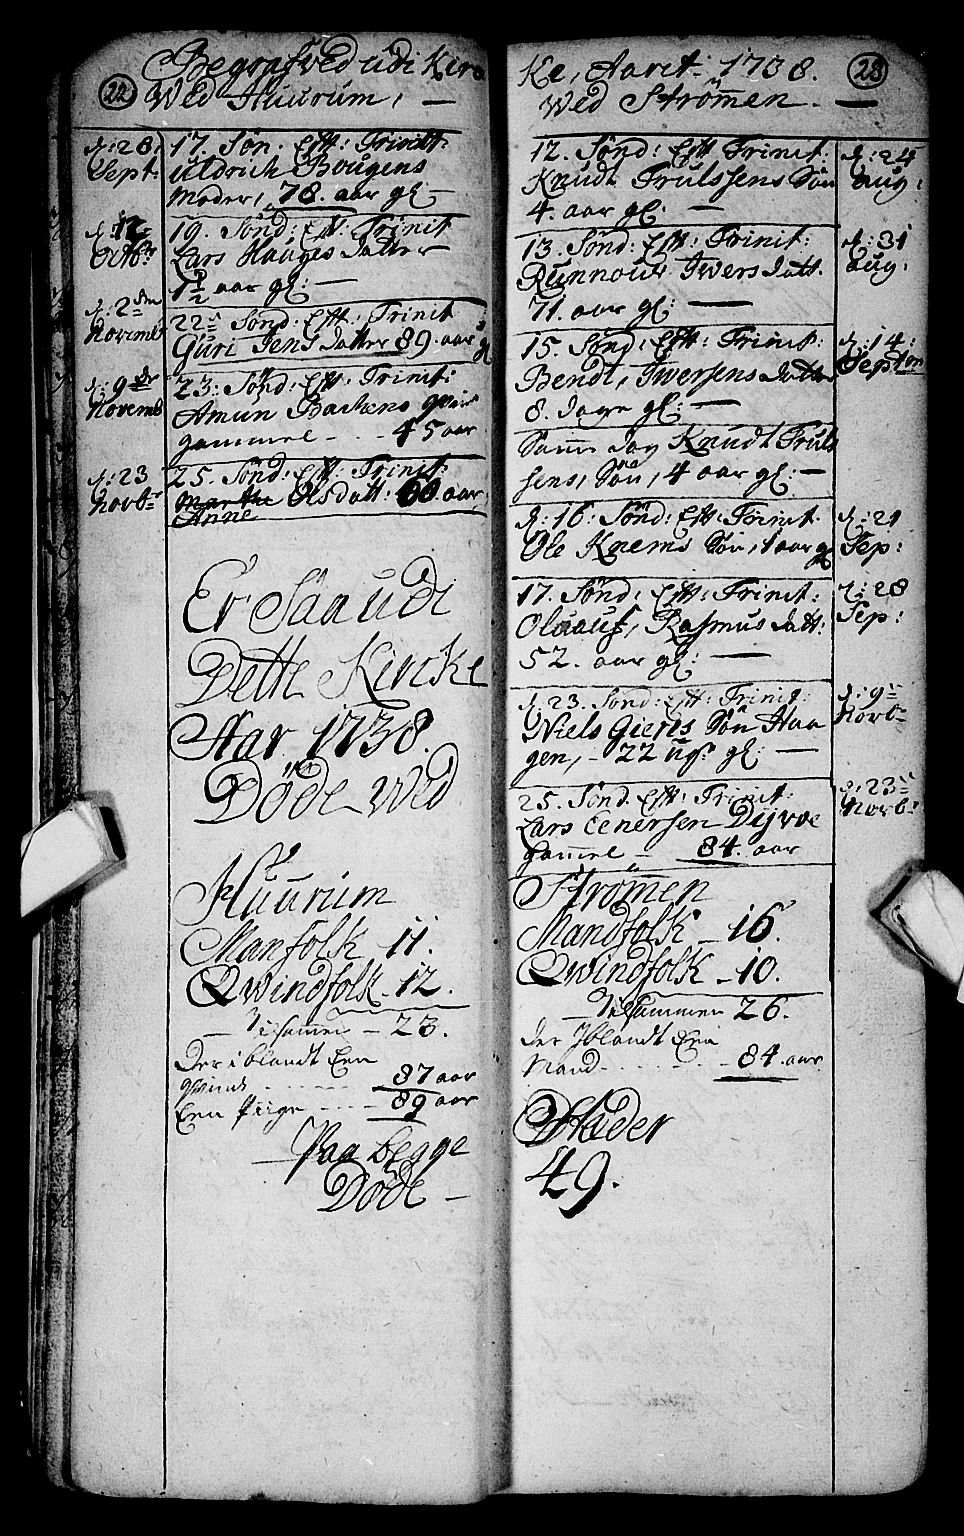 22
Begrafved udi Kir
Wed Huurum, —
d: 28
Sept:
17. Søn. Eftt: Trinit:
Uldrich Bougens
Moder, 78. aar gl —
d: 12
Octbr
19. Sønd: Eft: Trinit
Lars Hauges Datter
1½ aar gl: —
d: 2den
Novemb
22 Sønd: Eftt: Trinit
Guri Jens Datter 89. aar gl
d: 9de
Novemb
23: Sønd: Eftt: Trinit:
Amun Bachens qvin
gammel - - - - 45 aar
d: 23
Novbr
25. Sønd: Eftt: Trinit:
Marthe Olsdatt: 60. aar,
Anne
Er Saa udi
Dette Kircke
Aar 1738.
Døde Wed
Huurum
Manfolk — 11.
Qwindfolk — 12.
— Tilsamen — 23.
Der iblandt Een
qvinde - - - - - 87 aar
Een Piige - - - - 89 aar
— Paa begge
Døde —
23
Ke, Aaret: 1738.
Wed Strømen. —
12. Sønd: Eftt Trinit:
Knudt Trulssens Søn
4. aar gl: —
d: 24
aug:
13. Sønd: Eft: Trinit:
Runnoug Iwers datt.
71. aar gl: —
d: 31
aug:
15. Sønd: Eftt: Trinit:
Bendt, Iwersens Datter
8. dage gl: —
d: 14:
Septbr
Samme Dag Knudt Truls
sens, Søn, 4 aar gl: —
d: 16: Sønd: Eftt: Trinit.
Ole Knems Søn, 1 aar gl
d: 21
Sep:
17. Sønd: Eftt: Trinit:
Oluuf, Rasmus datt:
52. aar gl: —
d: 28
Sep:
d. 23. Sønd: Eft: Trinit:
Niels Gierts Søn Haa
gen, - 22 ugr gl: —
d: 9
Novbr
25. Sønd. Eft: Trinit:
Lars Eenersen Dyrvoe
Gamel — 84. aar
d: 23
Novbr
Strømen
Mandfolk — 16.
Qwindfolk — 10.
— Tilsammen 26.
der Iblandt Een
Mand - - - - - - 84. aar
Stæder
49.